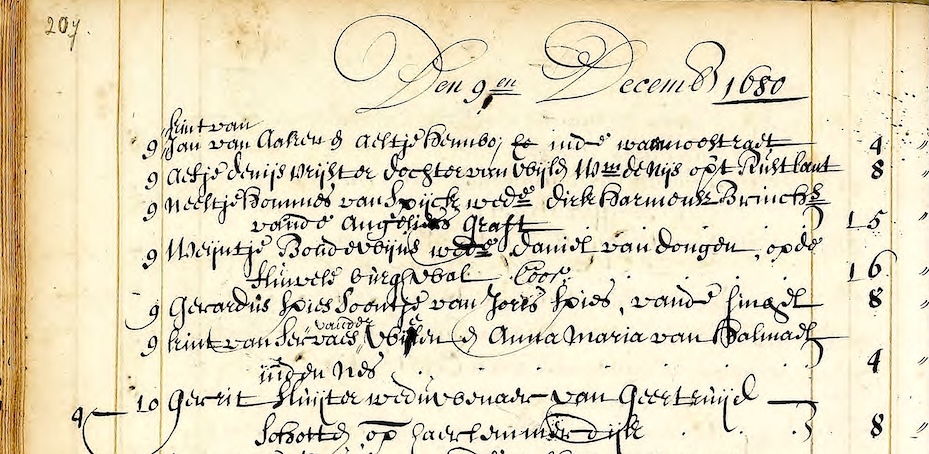 207.
Den 9en Decemb 1680
kint van
9 Jan van Aaken & Aeltje inde 4 "
9 Aeltje denijs vrijster dochter van Wm de Nijs op't Rustlant 8 "
9 Neeltje Hommes van Spijck wede Dirk Harmensz Brinckh
vande Angeliers Graft 15
9 Weijntje Boudewijns wede Daniel van dongen, op de
fluwele burghwal 16 "
9 Gerardus Spies Soontje van Joris Spies, vande Singel 8 "
vander
9 kint van Servaes & Anna Maria van
inden Nes 4 "
4 10 Gerrit Sluijter weduwenaer van Geertruijd
Schotte, op haerlemmer dijk 8 "